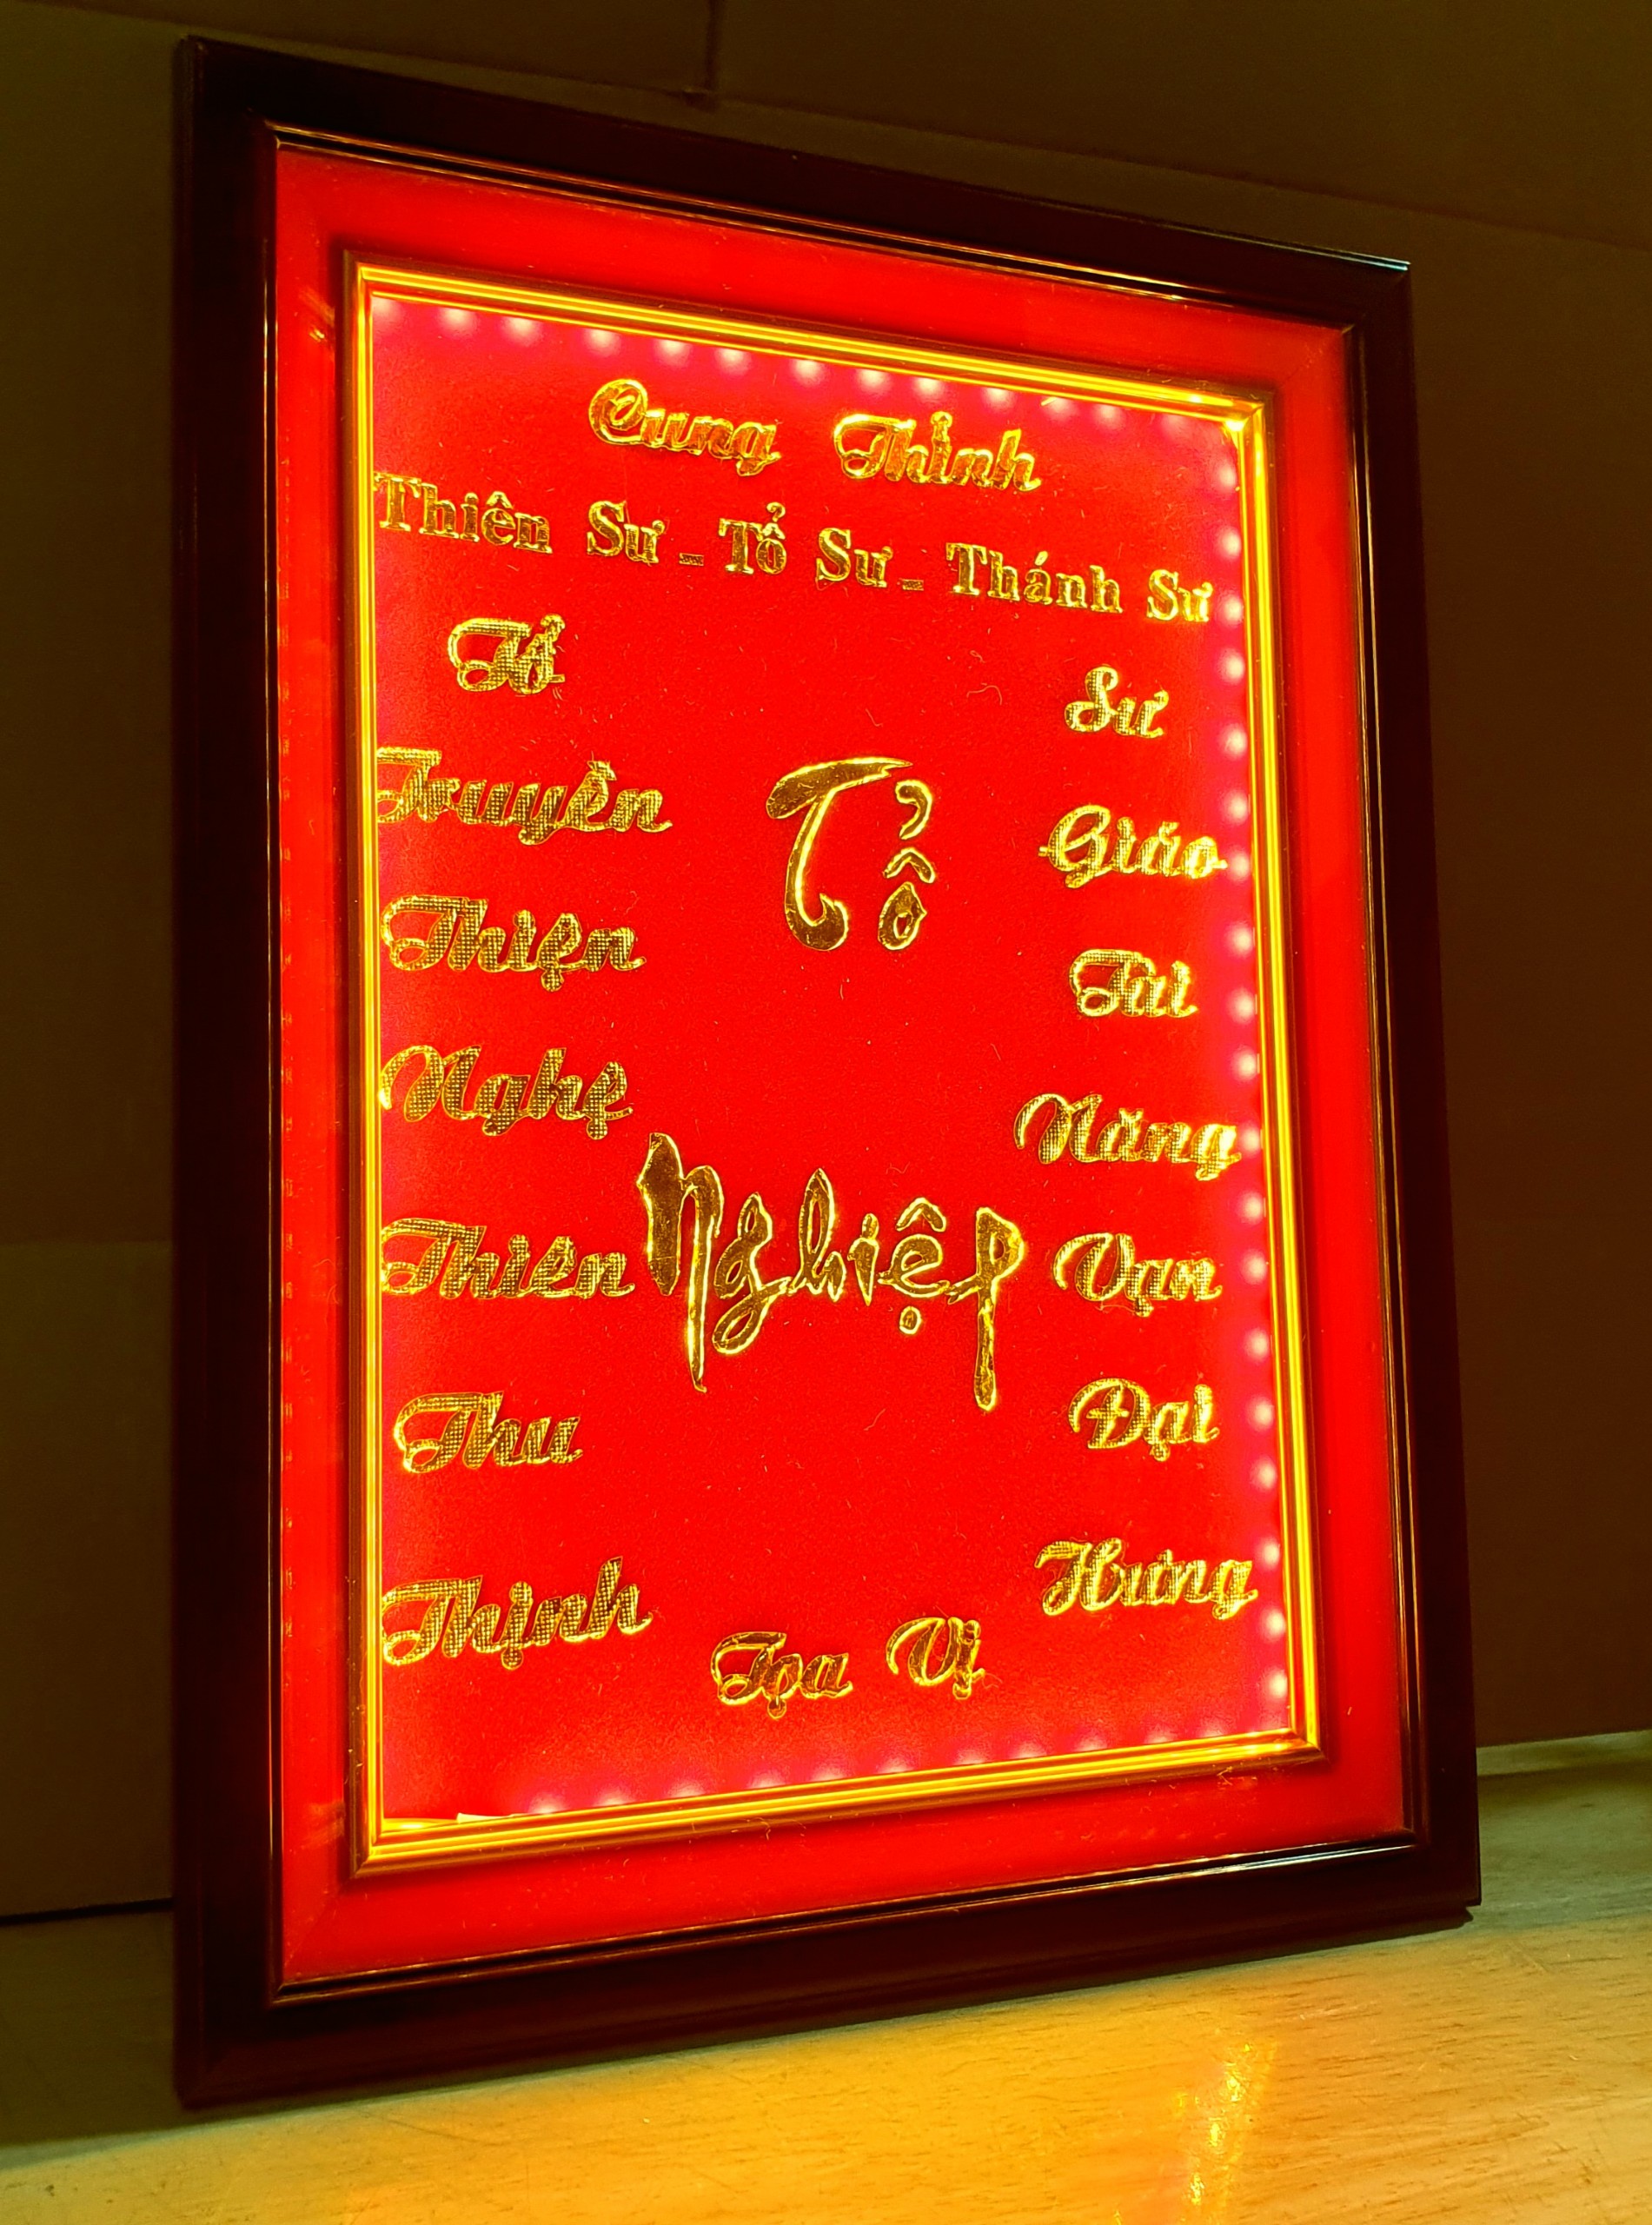 Cung Thỉnh
Thiên Sư - Tổ Sư - Thánh Sư
Tổ
Truyền
Thiện
Nghệ
Thiên
Thu
Thịnh
Tổ
Nghiệp
Sư
Giáo
Tài
Năng
Vạn
Đại
Hưng
Tọa Vị